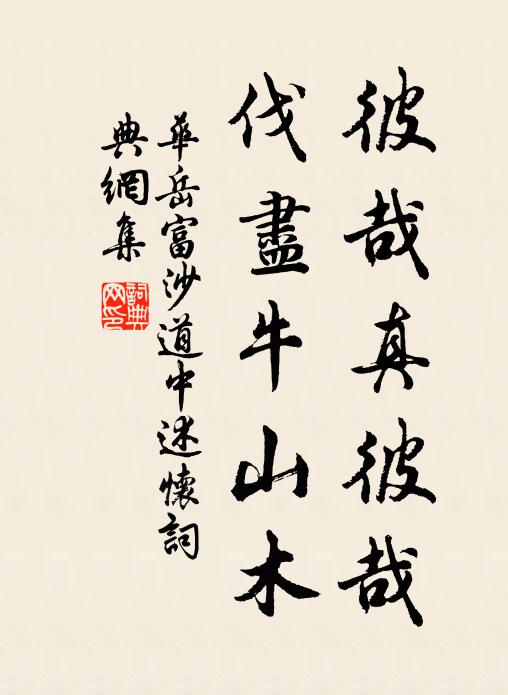 彼哉真彼哉
伐盡牛山木
華岳富沙道中述懷詞
典網集
詞典網印